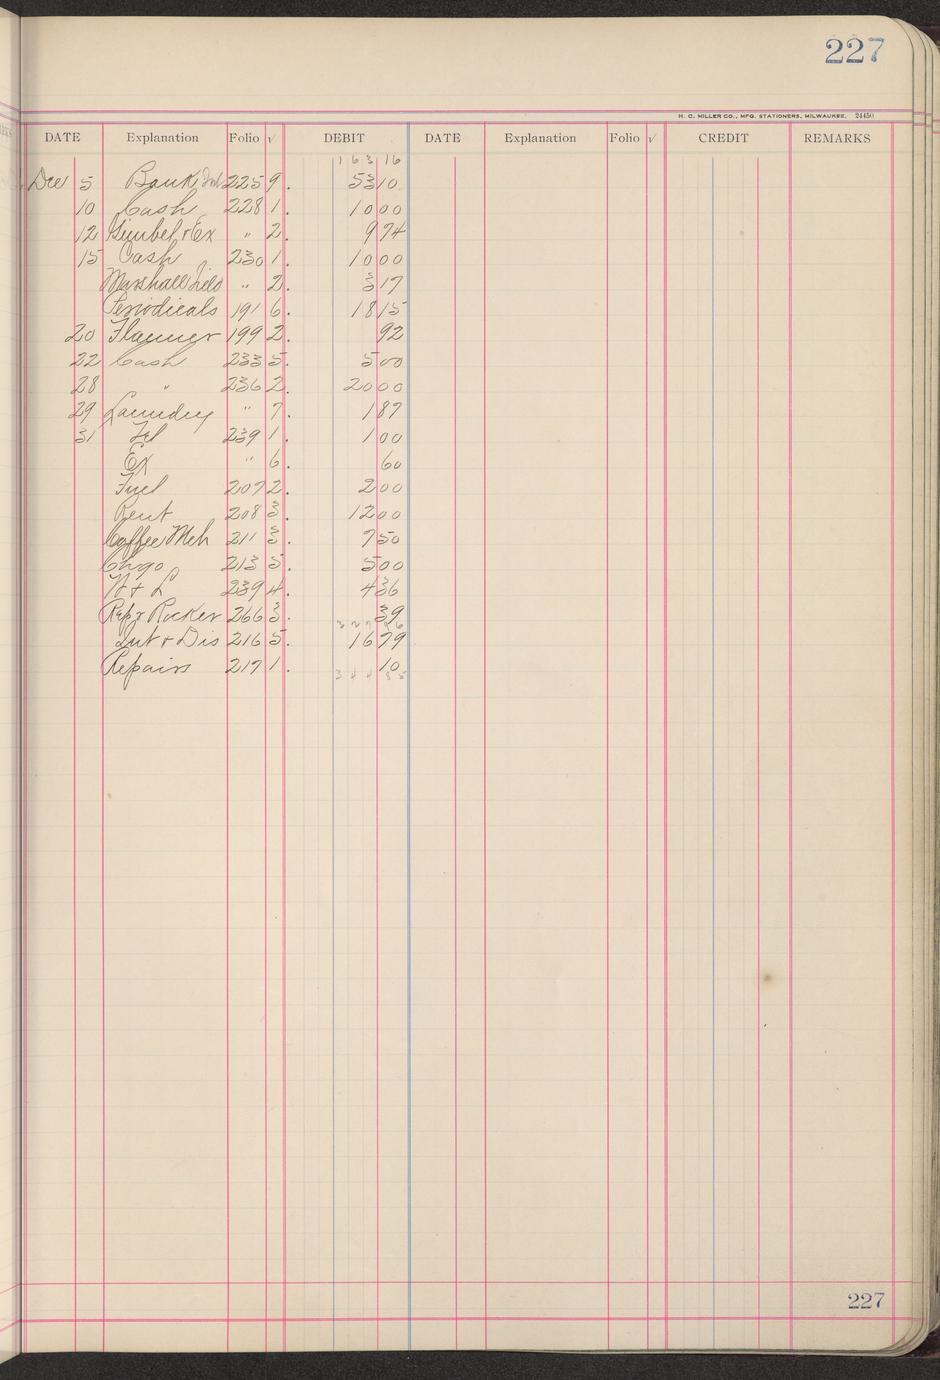 227
H. C. MILLER CO., MFG. STATIONERS, MILWAUKEE. 24450
DATE Explanation Folio √ DEBIT DATE Explanation Folio √ CREDIT REMARKS
163 16
Dec 5 Bank Int 225 9. 53 10
10 Cash 228 1. 10 00
12 Gimbel + Ex " 2. 9 74
15 Cash 230 1. 10 00
Marshall Field " 2. 3 17
Periodicals 191 6. 18 15
20 Flanner 199 2. 92
22 Cash 233 5. 5 00
28 " 236 2. 20 00
29 Laundry " 7. 1 87
31 Tel 239 1. 1 00
Ex " 6. 60
Fuel 207 2. 2 00
Rent 208 3. 12 00
Coffee Meh 211 3. 7 50
Chgo 213 5. 5 00
H + L 239 4. 4 36
Repr Rocker 266 3. 39
Int + Dis 216 5. 16 79
Repairs 217 1. 10
344 85
227